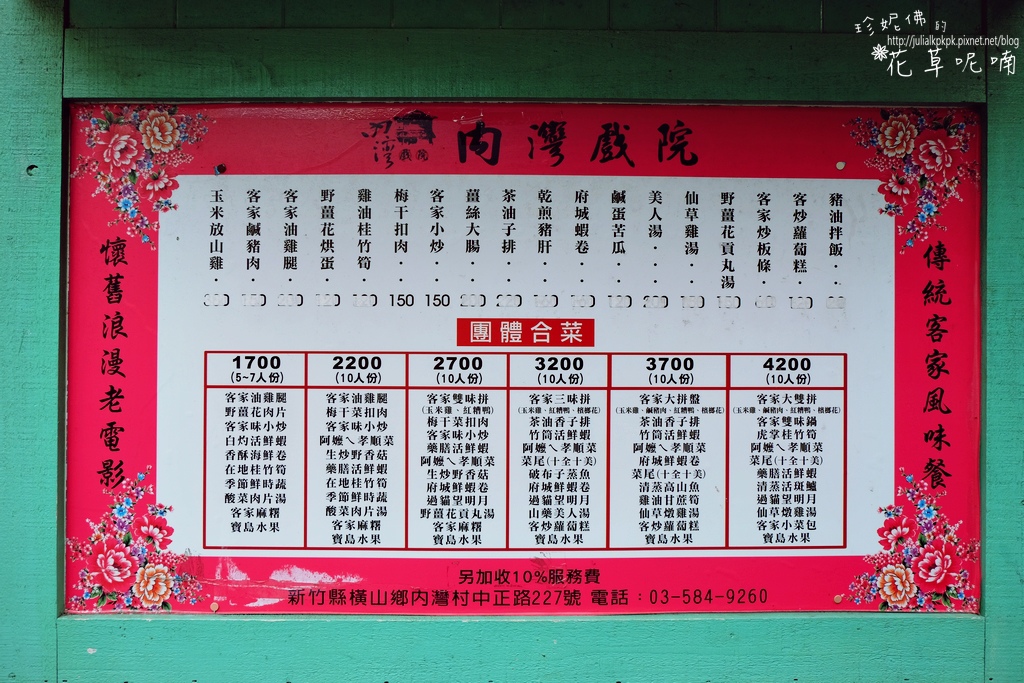 珍妮佛的
http://julialkpkpk.pixnet.net/blog
花草呢喃
內灣戲院
內灣戲院
懷舊浪漫老電影
傳統客家風味餐
玉米放山雞‧‧
客家鹹豬肉‧‧
客家油雞腿‧‧
野薑花烘蛋‧‧
雞油桂竹筍‧‧
梅干扣肉‧‧‧150
客家小炒‧‧‧150
薑絲大腸‧‧‧
茶油子排‧‧‧
乾煎豬肝‧‧‧
府城蝦卷‧‧‧
鹹蛋苦瓜‧‧‧
美人湯‧‧‧
仙草雞湯‧‧‧
野薑花貢丸湯
客家炒板條‧‧
客炒蘿蔔糕‧‧
豬油拌飯‧‧‧
團體合菜
1700
(5~7人份)
客家油雞腿
野薑花肉片
客家味小炒
白灼活鮮蝦
香酥海鮮卷
在地桂竹筍
季節鮮時蔬
酸菜肉片湯
客家麻糬
寶島水果
2200
(10人份)
客家油雞腿
梅干菜扣肉
客家味小炒
阿嬤ㄟ孝順菜
生炒野香菇
藥膳活鮮蝦
在地桂竹筍
季節鮮時蔬
酸菜肉片湯
客家麻糬
寶島水果
2700
(10人份)
客家雙味拼
(玉米雞、紅糟鴨)
梅干菜扣肉
客家味小炒
藥膳活鮮蝦
阿嬤ㄟ孝順菜
生炒野香菇
府城鮮蝦卷
過貓望明月
野薑花貢丸湯
客家麻糬
寶島水果
3200
(10人份)
客家三味拼
(玉米雞、紅糟鴨、檳榔花)
茶油香子排
竹筒活鮮蝦
阿嬤ㄟ孝順菜
菜尾(十全十美)
破布子蒸魚
府城鮮蝦卷
過貓望明月
山藥美人湯
客炒蘿蔔糕
寶島水果
3700
(10人份)
客家大拼盤
(玉米雞、鹹豬肉、紅糟鴨、檳榔花)
茶油香子排
竹筒活鮮蝦
阿嬤ㄟ孝順菜
府城鮮蝦卷
菜尾(十全十美)
清蒸高山魚
雞油甘蔗筍
仙草燉雞湯
客炒蘿蔔糕
寶島水果
4200
(10人份)
客家大雙拼
(玉米雞、鹹豬肉、紅糟鴨、檳榔花)
客家雙味鍋
虎掌桂竹筍
阿嬤ㄟ孝順菜
菜尾(十全十美)
藥膳活鮮蝦
清蒸活斑鱸
過貓望明月
仙草燉雞湯
客家小菜包
寶島水果
另加收10%服務費
新竹縣橫山鄉內灣村中正路227號 電話：03-584-9260